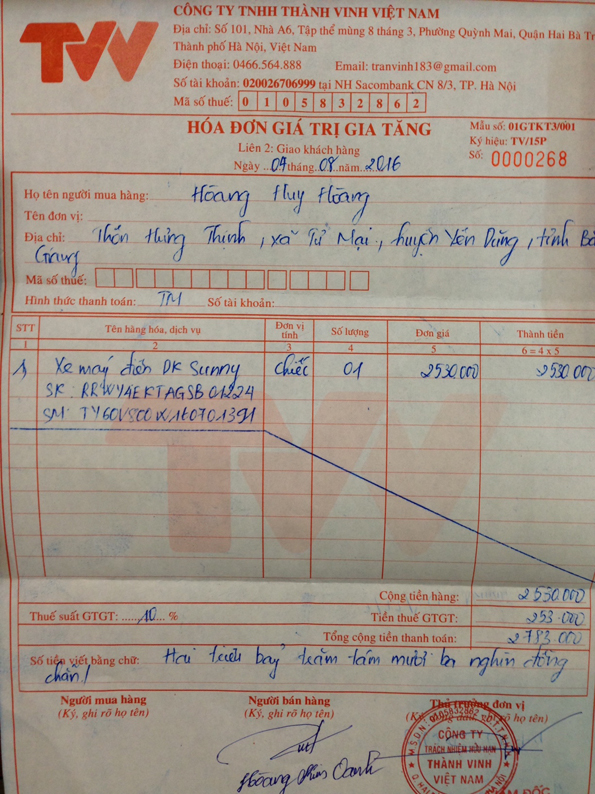 TVV
CÔNG TY TNHH THÀNH VINH VIỆT NAM
Địa chỉ: Số 101, Nhà A6, Tập thể mùng 8 tháng 3, Phường Quỳnh Mai, Quận Hai Bà
Thành phố Hà Nội, Việt Nam
Điện thoại: 0466.564.888 Email: tranvinh183@gmail.com
Số tài khoản: 020026706999 tại NH Sacombank CN 8/3, TP. Hà Nội
Mã số thuế: 0 1 0 5 8 3 2 8 6 2
HÓA ĐƠN GIÁ TRỊ GIA TĂNG
Mẫu số: 01GTKT3/001
Liên 2: Giao khách hàng
Ký hiệu: TV/15P
Ngày ...09 tháng ...08 ...năm...2016
Số: 0000268
Họ tên người mua hàng: Hoàng Huy Hoàng
Tên đơn vị:
Địa chỉ: Thôn Hưng Thịnh, xã Tư Mại, huyện Yên Dũng, tỉnh
Giang
Mã số thuế:
Hình thức thanh toán: TM Số tài khoản:
STT Tên hàng hóa, dịch vụ Đơn vị tính Số lượng Đơn giá Thành tiền
1 2 3 4 5 6 = 4 x 5
1, Xe máy điện DK Sunny chiếc 01 2530.000 2530.000
SK: RRWY4EKTAGSB01224
SM: TY60V500W160701391
TVV
Cộng tiền hàng: 2 530.000
Thuế suất GTGT: ......10... % Tiền thuế GTGT: 253.000
Tổng cộng tiền thanh toán: 2 783.000
Số tiền viết bằng chữ: Hai triệu bảy trăm tám mươi ba nghìn đồng
chẵn./
Người mua hàng Người bán hàng Thủ trưởng đơn vị
(Ký, ghi rõ họ tên) (Ký, ghi rõ họ tên) ghi rõ họ tên)
CÔNG TY
TRÁCH NHIỆM HỮU HẠN
THÀNH VINH
VIỆT NAM
Hoàng Kim Oanh
ĐỐC